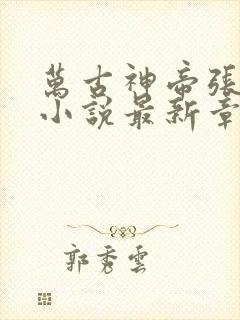 萬古神帝張
小說最新章
郭秀雲